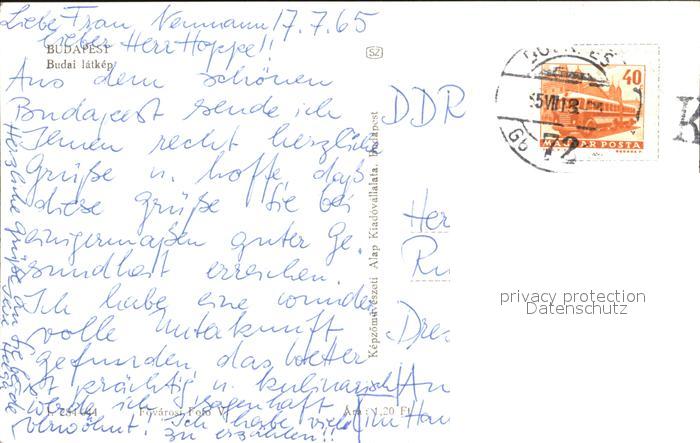 Liebe Frau Neumann 17.7.65
lieber Herr Hoppe!!
BUDAPEST
Budai látkép
SZ
Aus dem schönen
Budapest sende ich
Ihnen recht herzliche
Grüße u. hoffe daß
diese Grüße Sie bei
einigermaßen guter Ge-
sundheit erreichen.
Ich habe eine wunder
volle Unterkunft
gefunden, das Wetter
ist prächtig u. kulinarisch
werde ich sagenhaft
verwöhnt! Ich habe viel
zu erzählen!!
Herzliche Grüße an
Képzőművészeti Alap Kiadóvállalata, Budapest
Fővárosi Fotó V.
Ára: 1,20 Ft
DDR
Her
Ru
Dres
An
im Hau
40
MAGYAR POSTA
72
privacy protection
Datenschutz